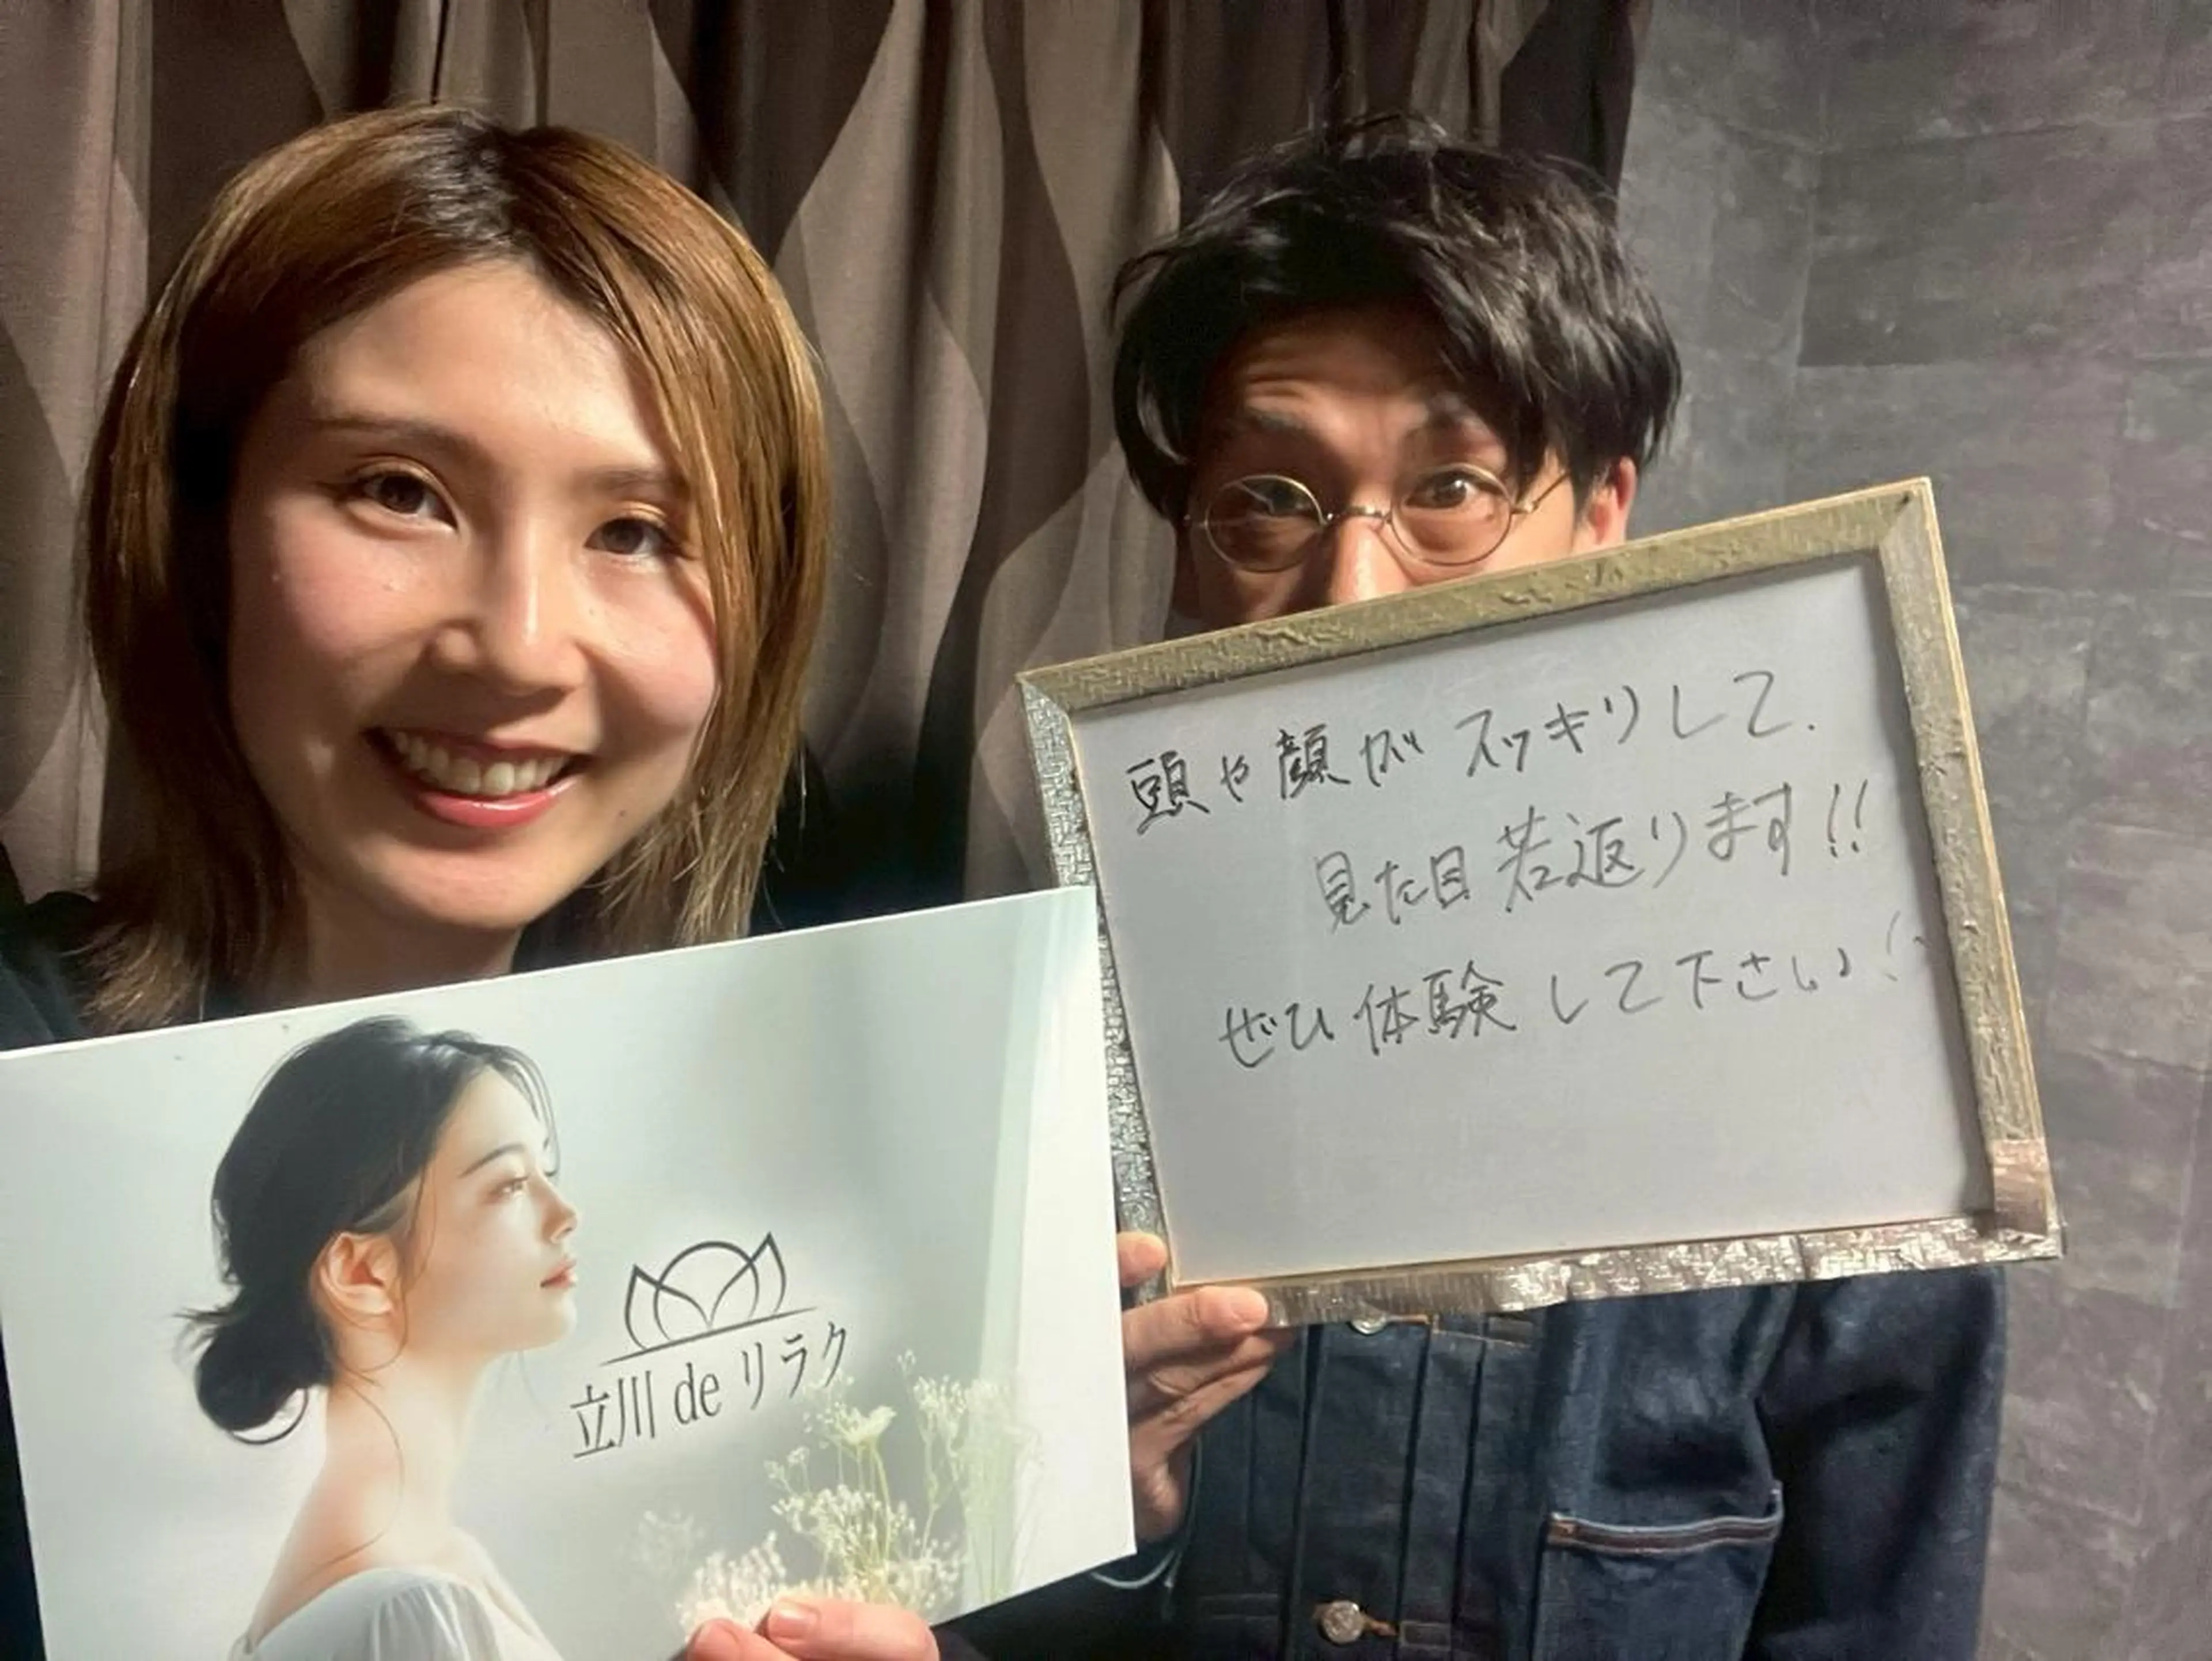 頭や顔がスッキリして、
見た目若返ります!!
ぜひ体験して下さい!
立川 de リラク